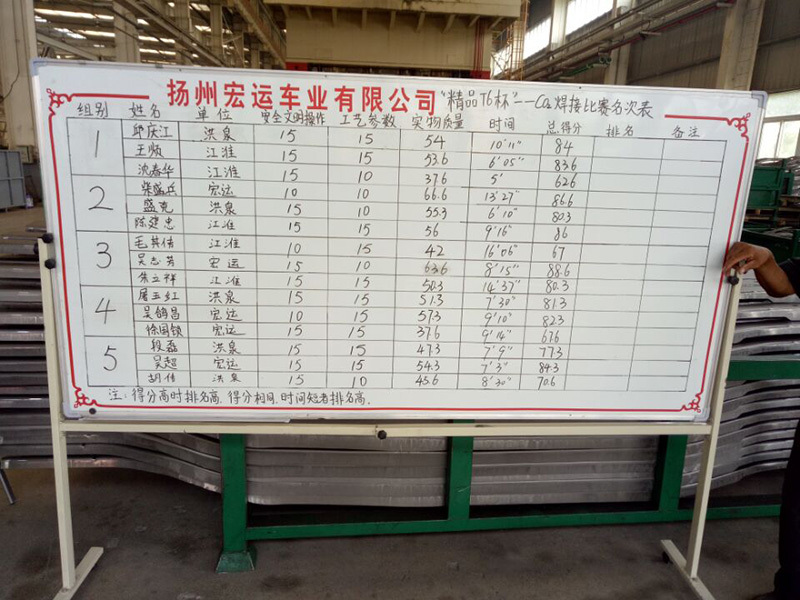 扬州宏运车业有限公司 "精品T6杯"--CO₂焊接比赛名次表
组别 姓名 单位 安全文明操作 工艺参数 实物质量 时间 总得分 排名 备注
1 邱庆江 洪泉 15 15 54 10'11" 84
王顺 江淮 15 15 53.6 6'05" 83.6
沈春华 江淮 15 10 37.6 5' 62.6
2 柴盛兵 宏运 10 10 66.6 13'27" 86.6
盛克 洪泉 15 10 55.3 6'10" 80.3
陈建忠 江淮 15 15 56 9'16" 86
3 毛其倩 江淮 10 15 42 16'06" 67
吴志芳 宏运 15 10 63.6 8'15" 88.6
朱立祥 江淮 15 15 50.3 14'37" 80.3
4 屠玉红 洪泉 15 15 51.3 7'30" 81.3
吴鸽昌 宏运 10 15 57.3 9'10" 82.3
徐国锁 宏运 15 15 37.6 9'14" 67.6
5 段磊 洪泉 15 15 47.3 7'9" 77.3
吴超 宏运 15 15 54.3 7'3" 84.3
胡伟 洪泉 15 10 45.6 8'30" 70.6
注:得分高时排名高,得分相同,时间短者排名高.